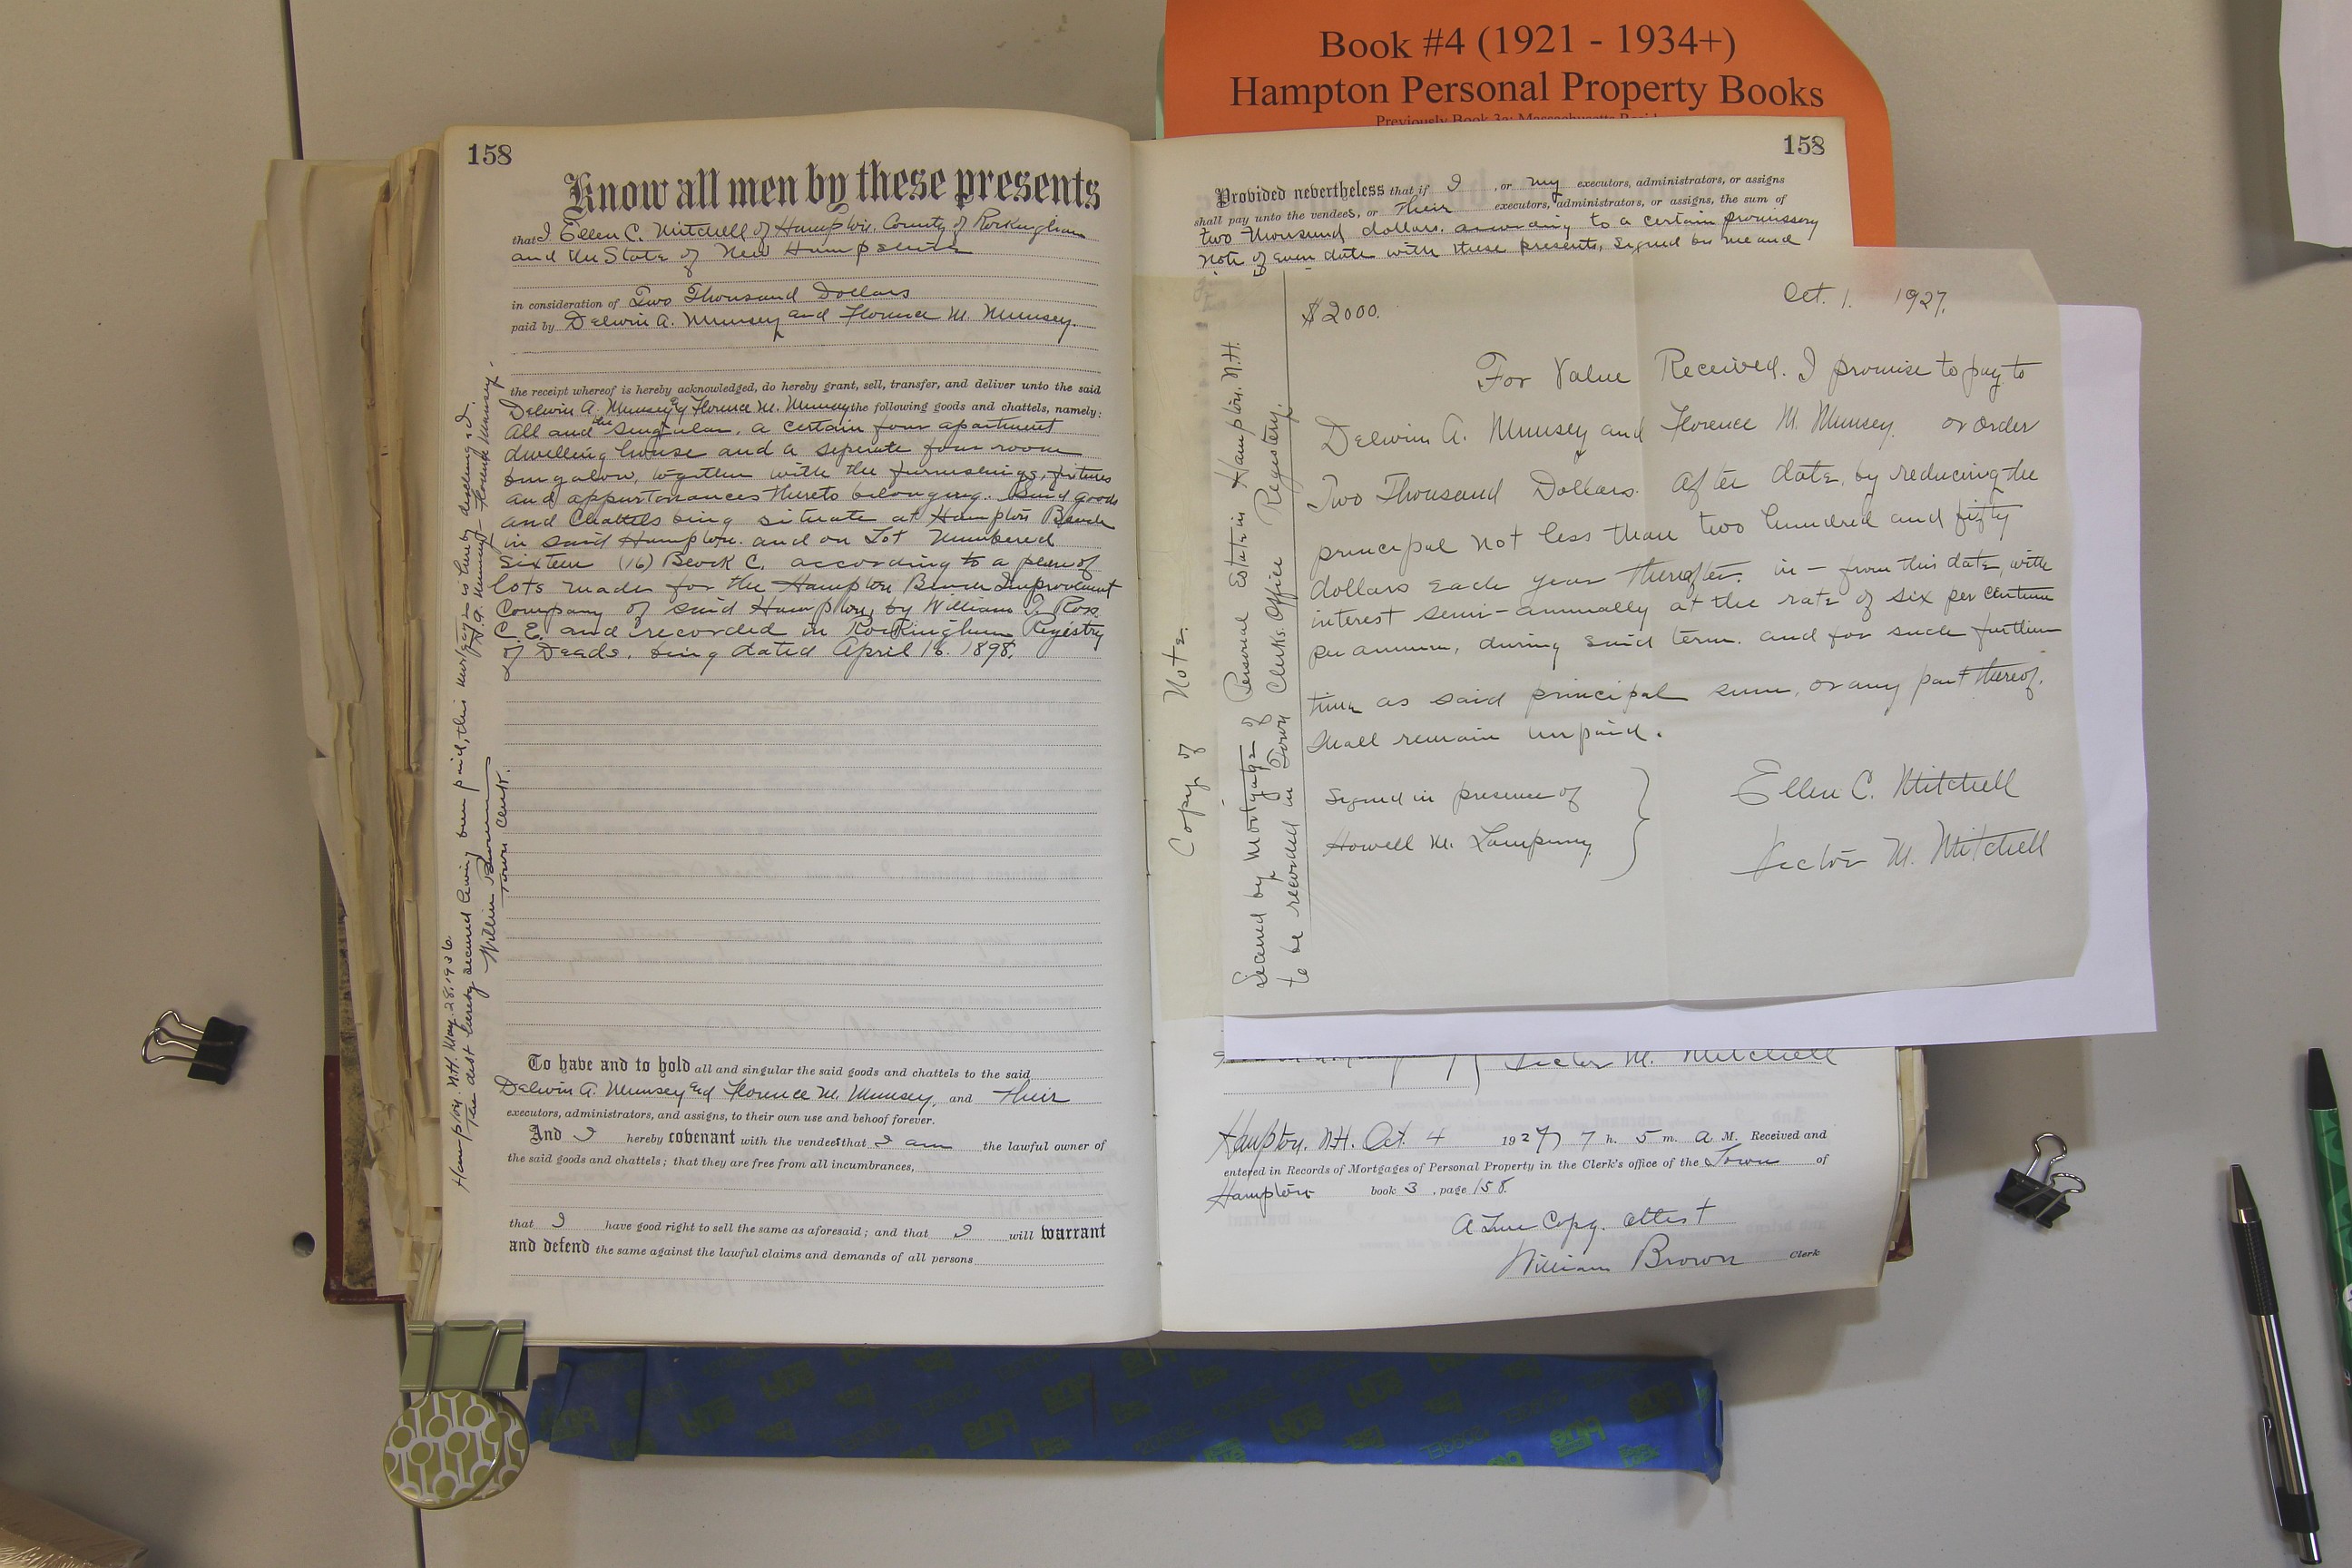 Book #4 (1921 - 1934+)
Hampton Personal Property Books
158
Know all men by these presents
that I Ellen C. Mitchell of Hampton. County of Rockingham
and the State of New Hampshire
in consideration of Two Thousand Dollars
paid by Delwin A. Munsey and Florence M. Munsey.
the receipt whereof is hereby acknowledged, do hereby grant, sell, transfer, and deliver unto the said
Delwin A. Munsey and Florence M. Munsey the following goods and chattels, namely:
All and the singular, a certain four apartment
dwelling house and a seperate four room
bungalow, together with the furnishings, fixtures
and appurtanances thereto belonging. Said goods
and Chattels being situate at Hampton Beach
in said Hampton. and on Lot Numbered
Sixteen (16) Block C. according to a plan of
lots made for the Hampton Beach Improvement
Company of said Hampton, by William T. Ross
C. E. and recorded in Rockingham Registry
of Deeds, being dated April 18. 1898.
To have and to hold all and singular the said goods and chattels to the said
Delwin A. Munsey and Florence M. Munsey, and Their
executors, administrators, and assigns, to their own use and behoof forever.
And I hereby covenant with the vendees that I am the lawful owner of
the said goods and chattels; that they are free from all incumbrances,
that I have good right to sell the same as aforesaid; and that I will warrant
and defend the same against the lawful claims and demands of all persons
Hampton. N.H. May. 28. 1936.
The dist hereby secured having been paid, this mortgage is hereby discharged.
D. A. Munsey - Florence Munsey.
William Brown
Town Clerk.
158
Provided nevertheless that if I, or my executors, administrators, or assigns
shall pay unto the vendees, or Their executors, administrators, or assigns, the sum of
two thousand dollars. according to a certain promissory
note of even date with these presents, signed by me and
Copy of Note.
Secured by Mortgage of Personal Estate in Hampton. N.H.
to be recorded in Town Clerks Office Registery.
$2000. Oct. 1. 1927.
For Value Received. I promise to pay to
Delwin A. Munsey and Florence M. Munsey. or order
Two Thousand Dollars. After date, by reducing the
principal not less than two hundred and fifty
dollars each year thereafter. in - from this date, with
interest semi-annually at the rate of six per centum
per annum, during said term. and for such further
time as said principal sum, or any part thereof.
shall remain unpaid.
Signed in presence of
Howell M. Lamprey
Ellen C. Mitchell
Victor M. Mitchell
Victor M. Mitchell
Hampton. N.H. Oct. 4 1927 7 h. 5 m. A M. Received and
entered in Records of Mortgages of Personal Property in the Clerk's office of the Town of
Hampton book 3, page 158.
A True Copy. Attest
William Brown Clerk